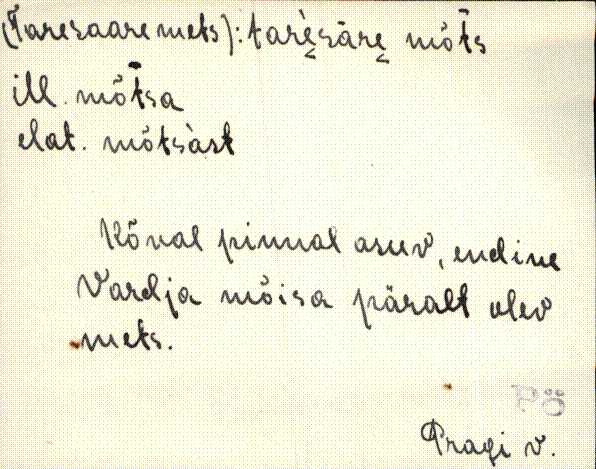 (Taresaare mets): tarèsāre mõt̄s
ill. mõt̄sa
elat. mõtsàst
Kõval pinnal asuv, endine
Vardja mõisa päralt olev
mets.
PÖ
Pragi v.